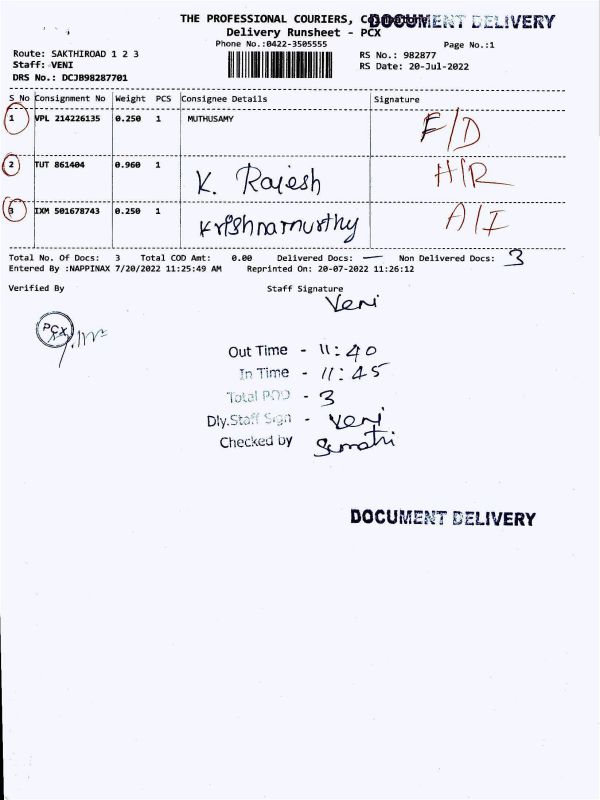 THE PROFESSIONAL COURIERS, Coimbatore
DOCUMENT DELIVERY
Delivery Runsheet - PCX
Phone No.:0422-3505555
Page No.:1
Route: SAKTHIROAD 1 2 3
RS No.: 982877
Staff: VENI
RS Date: 20-Jul-2022
DRS No.: DCJB98287701
S No Consignment No Weight PCS Consignee Details Signature
1 VPL 214226135 0.250 1 MUTHUSAMY F/D
2 TUT 861404 0.960 1 K. Rajesh H/R
3 IXM 501678743 0.250 1 Krishnamurthy A/I
Total No. Of Docs: 3 Total COD Amt: 0.00 Delivered Docs: — Non Delivered Docs: 3
Entered By :NAPPINAX 7/20/2022 11:25:49 AM Reprinted On: 20-07-2022 11:26:12
Verified By Staff Signature
Veni
PCX
Out Time - 11:40
In Time - 11:45
Total POD - 3
Dly.Staff Sign - Veni
Checked by Sumathi
DOCUMENT DELIVERY